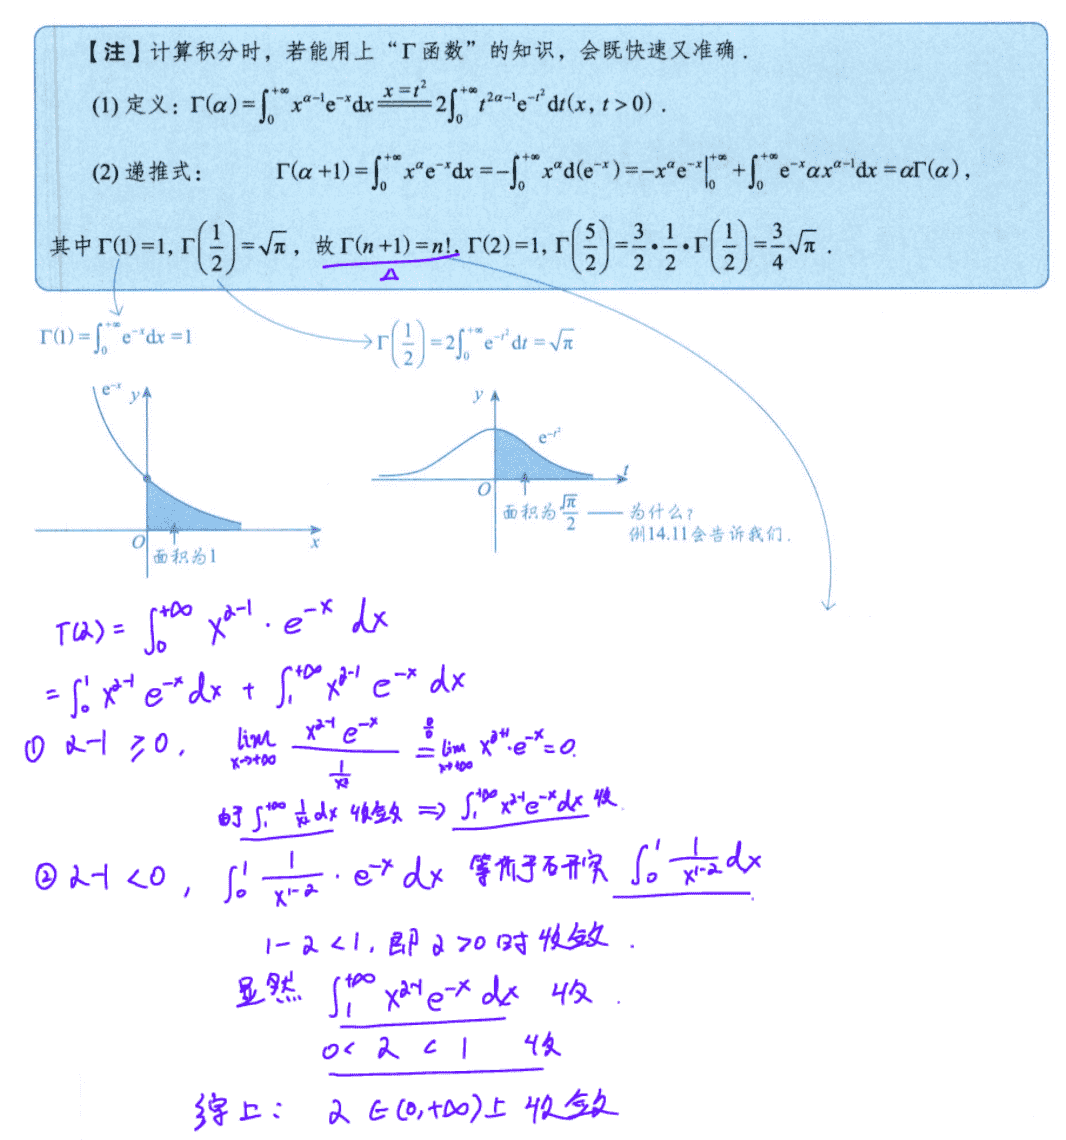 【注】计算积分时，若能用上“Γ函数”的知识，会既快速又准确．
(1) 定义：Γ(α)=∫₀^{+∞} x^{α−1}e^{−x}dx \xlongequal{x=t²} 2∫₀^{+∞} t^{2α−1}e^{−t²}dt(x, t>0)．
(2) 递推式： Γ(α+1)=∫₀^{+∞} x^α e^{−x}dx=−∫₀^{+∞} x^α d(e^{−x})=−x^α e^{−x}|₀^{+∞}+∫₀^{+∞} e^{−x}αx^{α−1}dx=αΓ(α)，
其中Γ(1)=1, Γ(1/2)=√π，故Γ(n+1)=n!, Γ(2)=1, Γ(5/2)=3/2·1/2·Γ(1/2)=3/4√π．
Δ
Γ(1)=∫₀^{+∞} e^{−x}dx=1
Γ(1/2)=2∫₀^{+∞} e^{−t²}dt=√π
e^{−x} y
O x
面积为1
y
e^{−t²}
O t
面积为√π/2 —— 为什么?
例14.11会告诉我们．
Γ(α)=∫₀^{+∞} x^{α−1}·e^{−x} dx
=∫₀¹ x^{α−1} e^{−x} dx + ∫₁^{+∞} x^{α−1} e^{−x} dx
① α−1≥0, lim_{x→+∞} (x^{α−1} e^{−x})/(1/x²) \overset{0/0}{=} lim_{x→+∞} x^{α+1}·e^{−x}=0.
由于∫₁^{+∞} 1/x² dx 收敛 ⇒ ∫₁^{+∞} x^{α−1}e^{−x}dx 收.
② α−1<0, ∫₀¹ 1/x^{1−α}·e^{−x} dx 等价于研究 ∫₀¹ 1/x^{1−α} dx
1−α<1, 即α>0时收敛.
显然 ∫₁^{+∞} x^{α−1}e^{−x} dx 收.
0<α<1 收
综上: α∈(0,+∞)上收敛